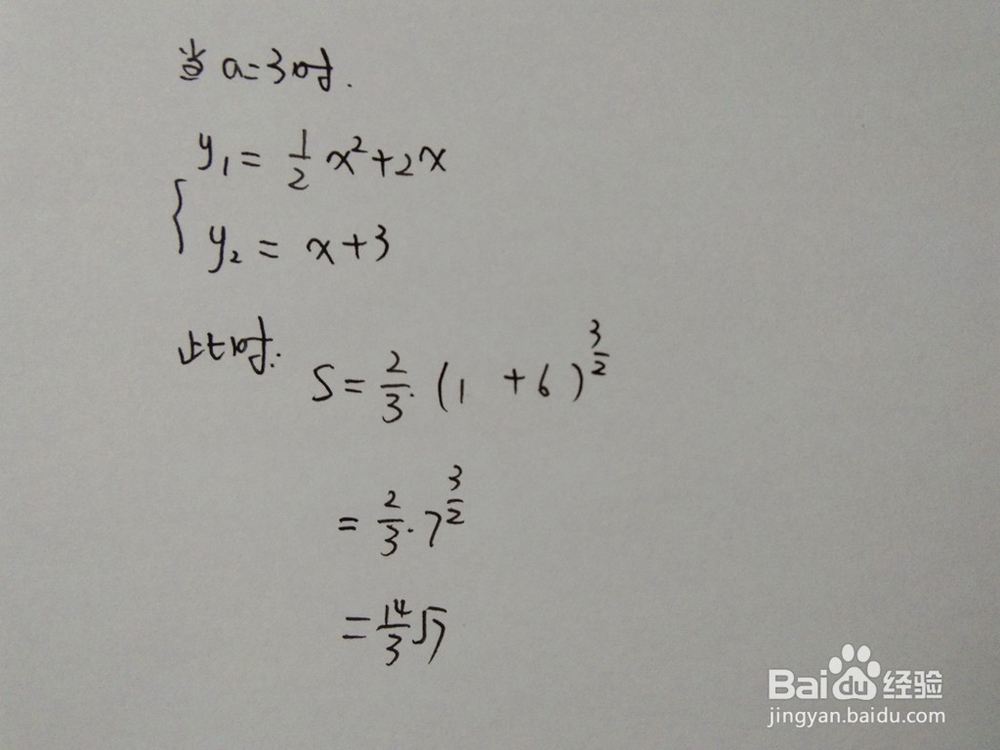 当a=3时.
y₁ = 1/2 x² + 2x
y₂ = x + 3
此时: S = 2/3 · (1 + 6)^(3/2)
= 2/3 · 7^(3/2)
= 14/3 √7
Baidu 经验
jingyan.baidu.com